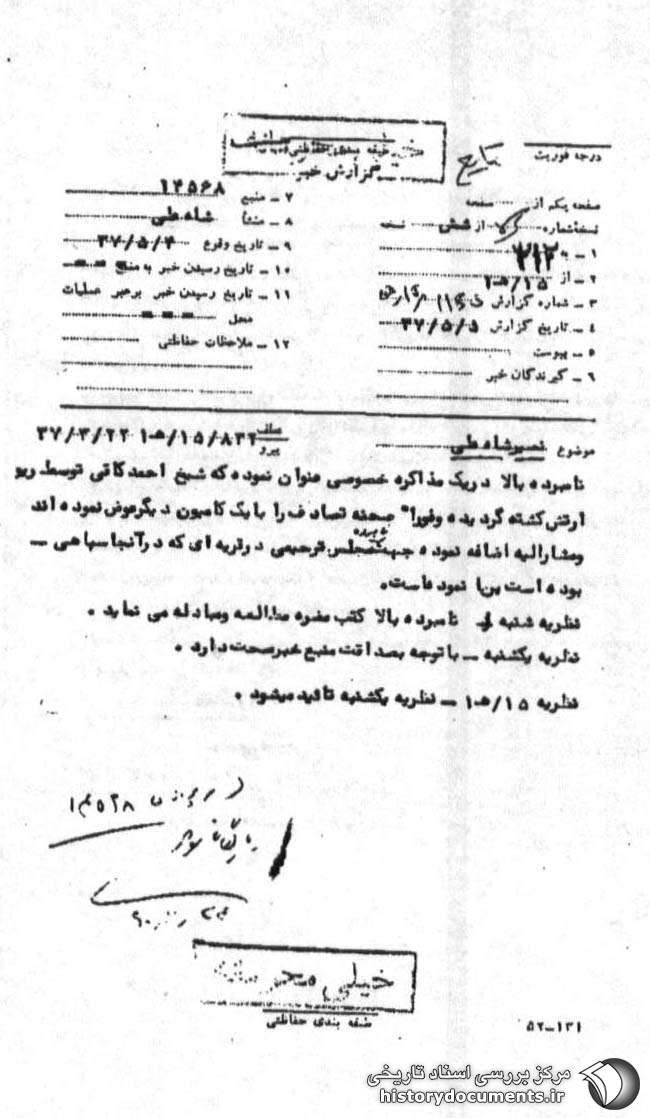 طبقه بندی حفاظتی
گزارش خبر
درجه فوریت
صفحه یکم از صفحه
نسخه شماره از شش نسخه
۱ – به ۳۱۲
۲ – از ۱۵/هـ۱
۳ – شماره گزارش
۴ – تاریخ گزارش ۳۷/۵/۵
۵ – پیوست
۶ – گیرندگان خبر
۷ – منبع ۱۴۵۶۸
۸ – منشأ شاه علی
۹ – تاریخ وقوع ۳۷/۵/۴
۱۰ – تاریخ رسیدن خبر به منبع
۱۱ – تاریخ رسیدن خبر برهبر عملیات
محل
۱۲ – ملاحظات حفاظتی
موضوع نصیر شاه علی
پیرو ۱۵/۸۳۲/هـ۱ ۳۷/۳/۲۲
نامبرده بالا در یک مذاکره خصوصی عنوان نموده که شیخ احمد کافی توسط ریو
ارتش کشته گردیده و فورا" صحنه تصادف را با یک کامیون دیگر عوض نموده اند
و مشارالیه اضافه نموده جهت نامبرده مجلس ترحیمی در قریه ای که در آنجا سپاهی –
بوده است برپا نموده است.
نظریه شنبه – نامبرده بالا کتب مضره مطالعه و مبادله می نماید .
نظریه یکشنبه – با توجه بصداقت منبع خبر صحت دارد .
نظریه ۱۵/هـ۱ – نظریه یکشنبه تائید میشود .
بایگانی شود
خیلی محرمانه
طبقه بندی حفاظتی
۵۲–۱۳۱
مرکز بررسی اسناد تاریخی
historydocuments.ir